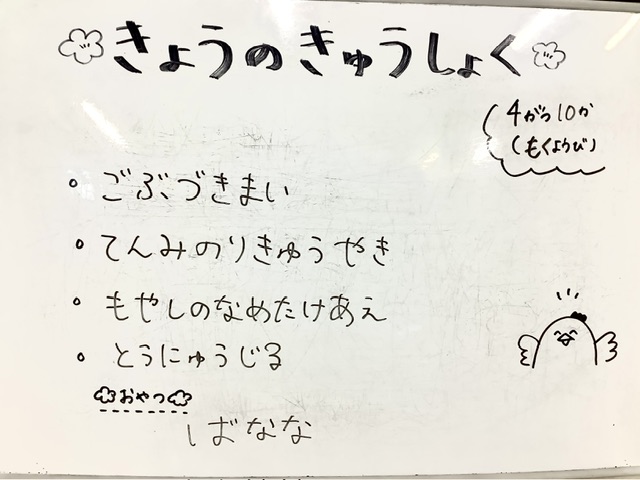 きょうのきゅうしょく
4がつ10か
(もくようび)
・ごぶづきまい
・てんみのりきゅうやき
・もやしのなめたけあえ
・とうにゅうじる
おやつ
ばなな